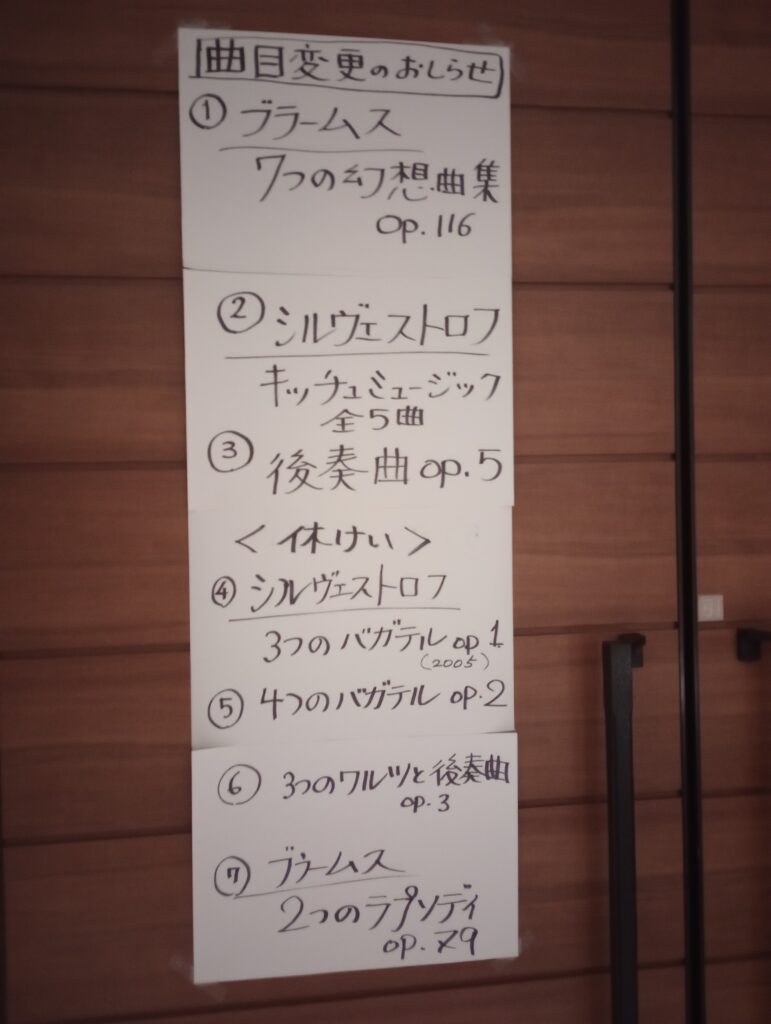 曲目変更のおしらせ
① ブラームス
7つの幻想曲集
Op. 116
② シルヴェストロフ
キッチュミュージック
全5曲
③ 後奏曲 op. 5
< 休けい >
④ シルヴェストロフ
3つのバガテル op 1
(2005)
⑤ 4つのバガテル op. 2
⑥ 3つのワルツと後奏曲
op. 3
⑦ ブラームス
2つのラプソディ
op. 79